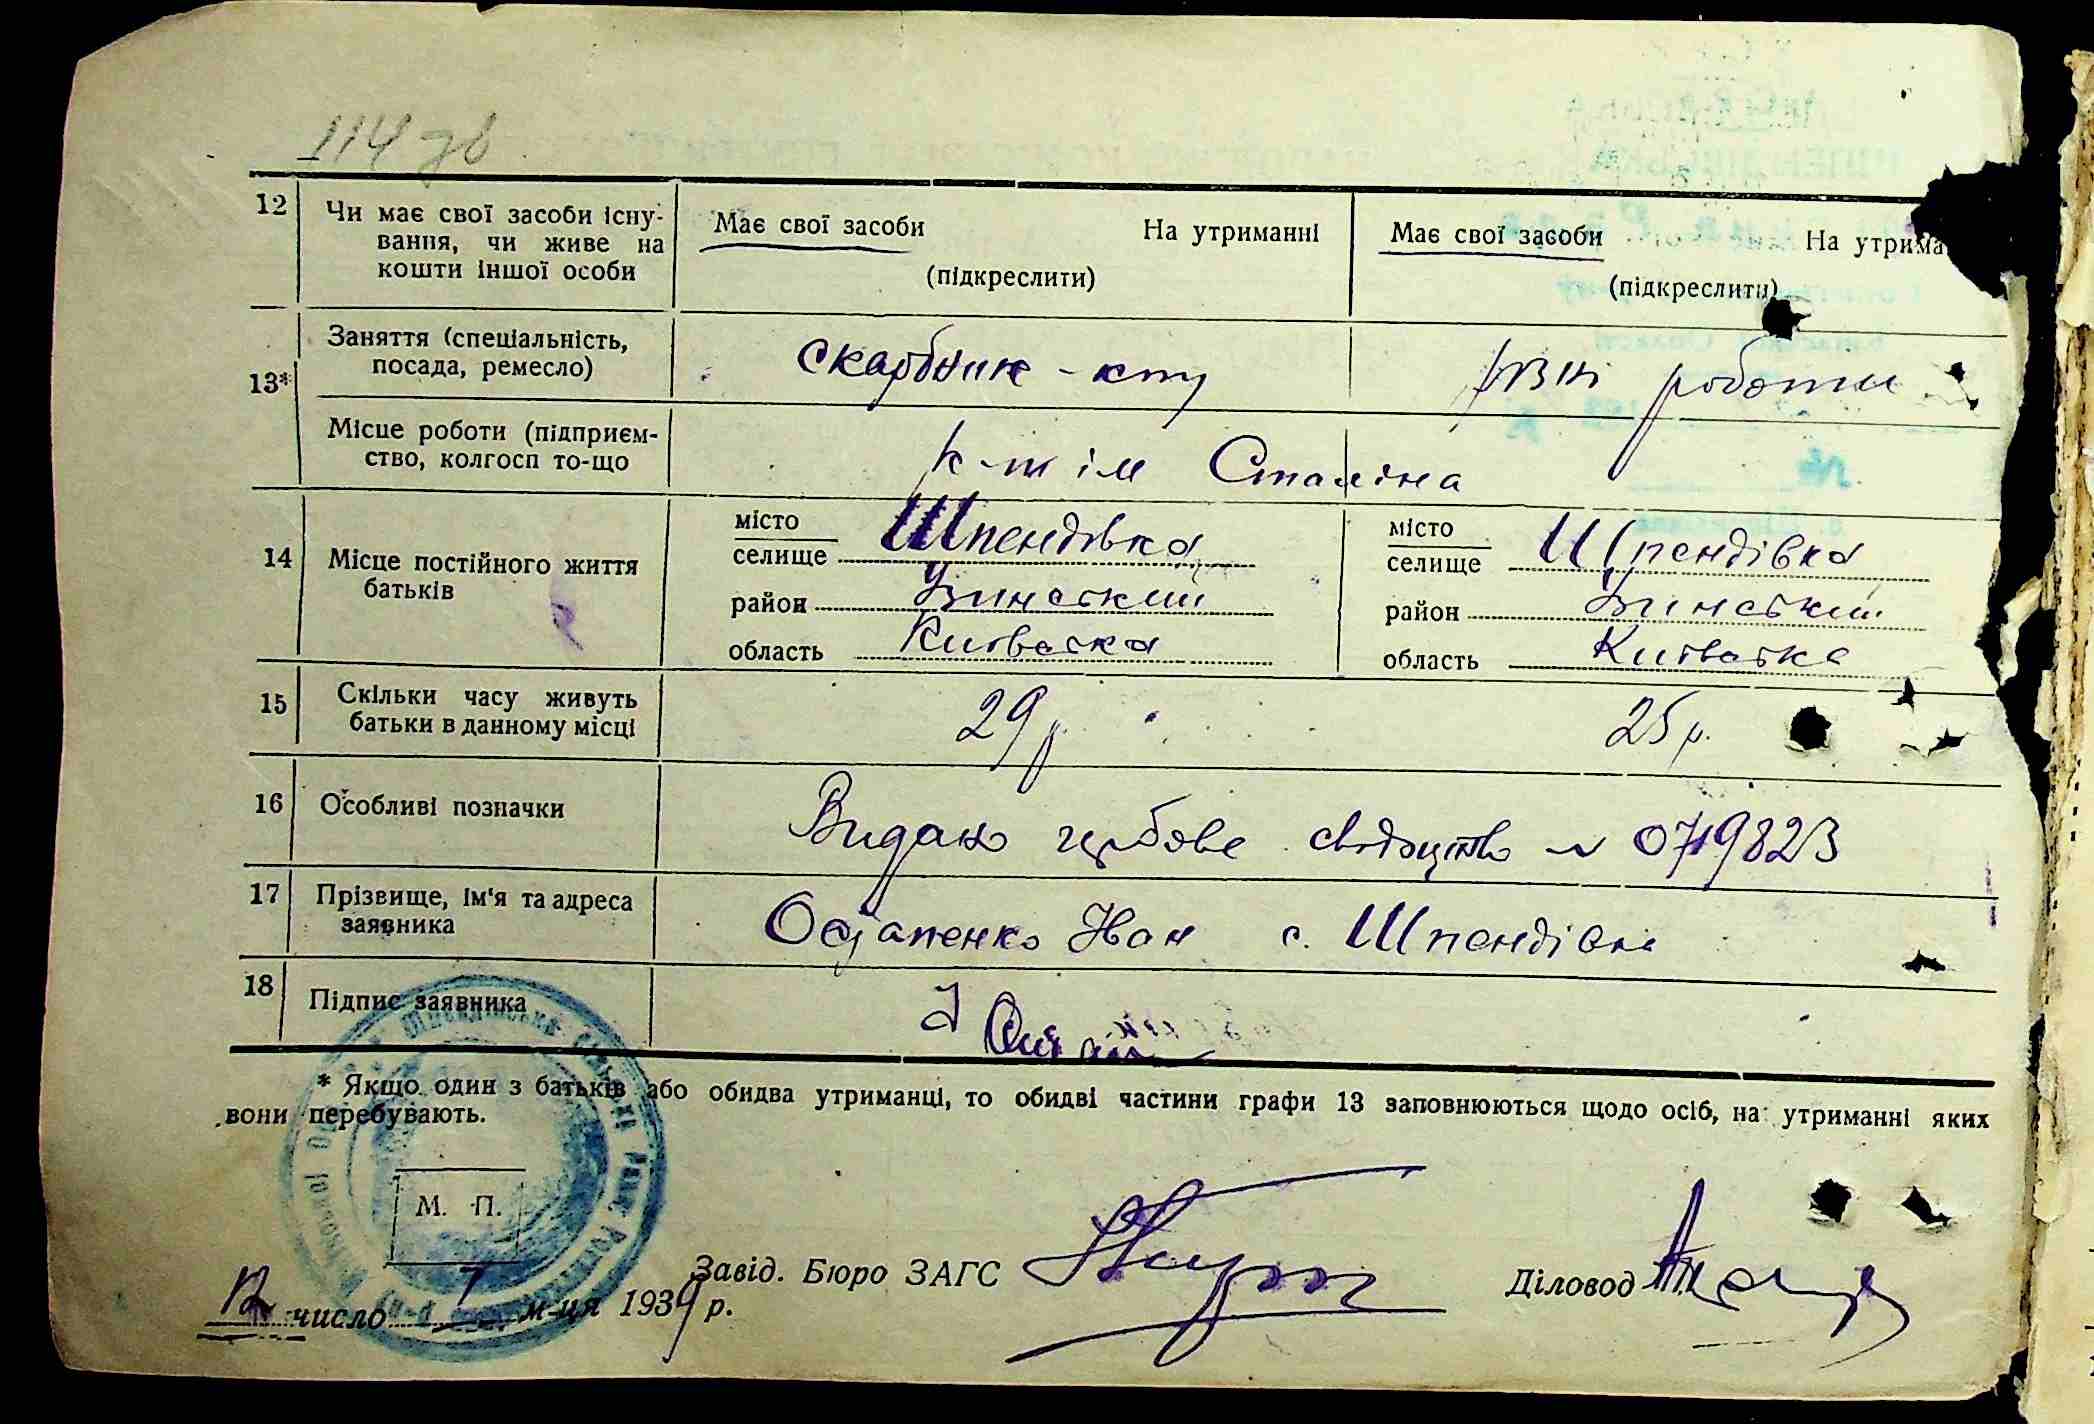 114 зв
12 Чи має свої засоби існу- Має свої засоби На утриманні Має свої засоби На утрима
вання, чи живе на
кошти іншої особи (підкреслити) (підкреслити)
13* Заняття (спеціальність, скарбник - кту різні роботи
посада, ремесло)
Місце роботи (підприєм- к-т ім Сталіна
ство, колгосп то-що
14 Місце постійного життя
батьків
місто
селище Шпендівка
район Узинський
область Київська
місто
селище Шпендівка
район Узинський
область Київська
15 Скільки часу живуть 29 р 25 р.
батьки в данному місці
16 Особливі позначки Видано гербове свідоцтво № 0719823
17 Прізвище, ім'я та адреса Остапенко Иван с. Шпендівка
заявника
18 Підпис заявника
* Якщо один з батьків або обидва утриманці, то обидві частини графи 13 заповнюються щодо осіб, на утриманні яких
вони перебувають.
М. П.
Завід. Бюро ЗАГС Діловод
12 число 7 м-ця 1939 р.